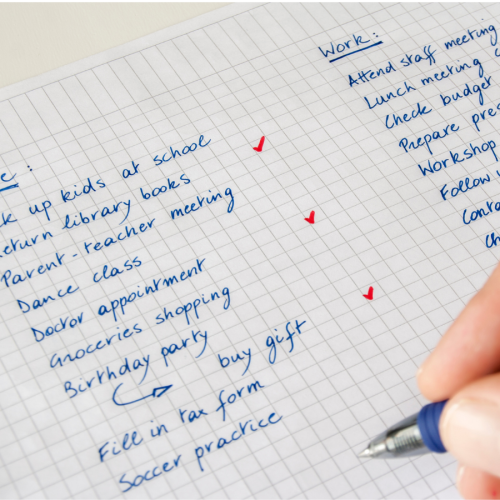 up kids at school
library books
Parent-teacher meeting
Dance class
Doctor appointment
Groceries shopping
Birthday party
buy gift
Fill in tax form
Soccer practice
Work:
Attend staff meeting
Lunch meeting
Check budget
Prepare
Workshop
Follow